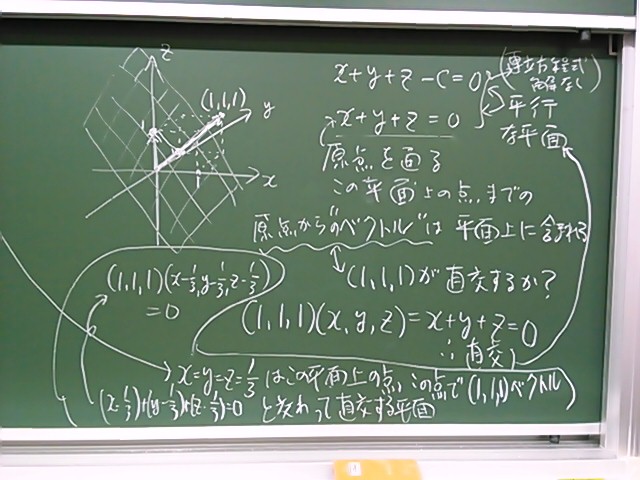 z
(1,1,1)
y
x
1
x+y+z-c=0
(連立方程式
解なし)
x+y+z=0
平行
な平面
原点を通る
この平面上の点までの
原点からの"ベクトル"は平面上に含まれる
(1,1,1)が直交するか?
(1,1,1)(x-1/3,y-1/3,z-1/3)
=0
(1,1,1)(x,y,z)=x+y+z=0
∴直交
x=y=z=1/3はこの平面上の点,この点で(1,1,1)ベクトル
(x-1/3)+(y-1/3)+(z-1/3)=0 と交わって直交する平面